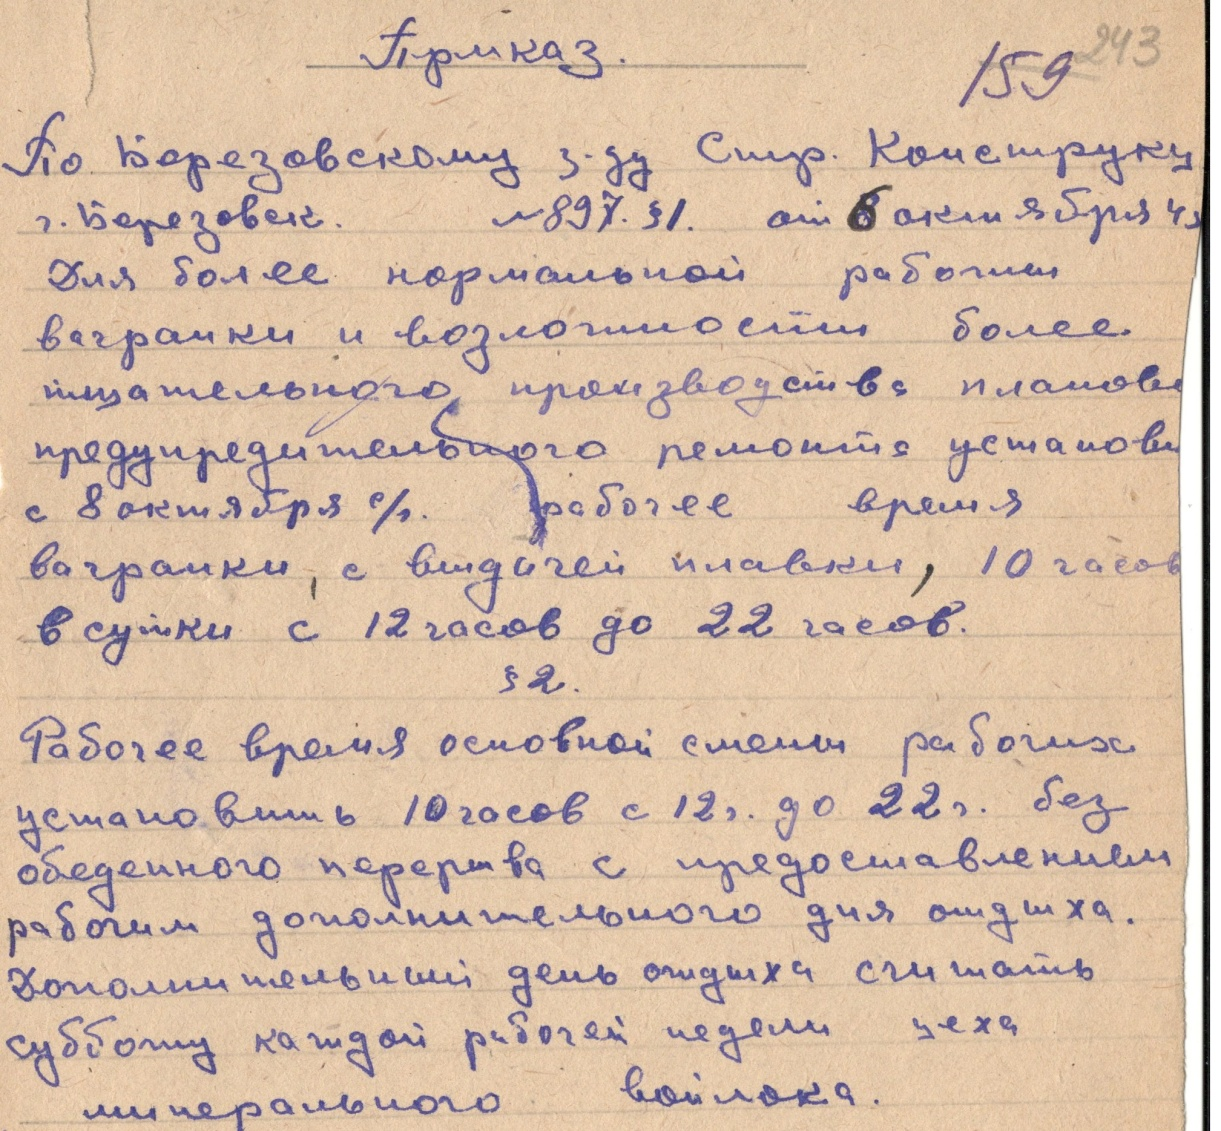 Приказ.
243
159
По Березовскому з-ду Стр. Конструкц
г. Березовск. №897. §1. от 6 октября 4
Для более нормальной работы
вагранки и возможности более
тщательного производства планово
предупредительного ремонта установи
с 8 октября с/г. рабочее время
вагранки, с выдачей плавки, 10 часов
в сутки с 12 часов до 22 часов.
§2.
Рабочее время основной смены рабочих
установить 10 часов с 12 ч. до 22 ч. без
обеденного перерыва с предоставлением
рабочим дополнительного дня отдыха.
Дополнительный день отдыха считать
субботу каждой рабочей недели цеха
минерального войлока.